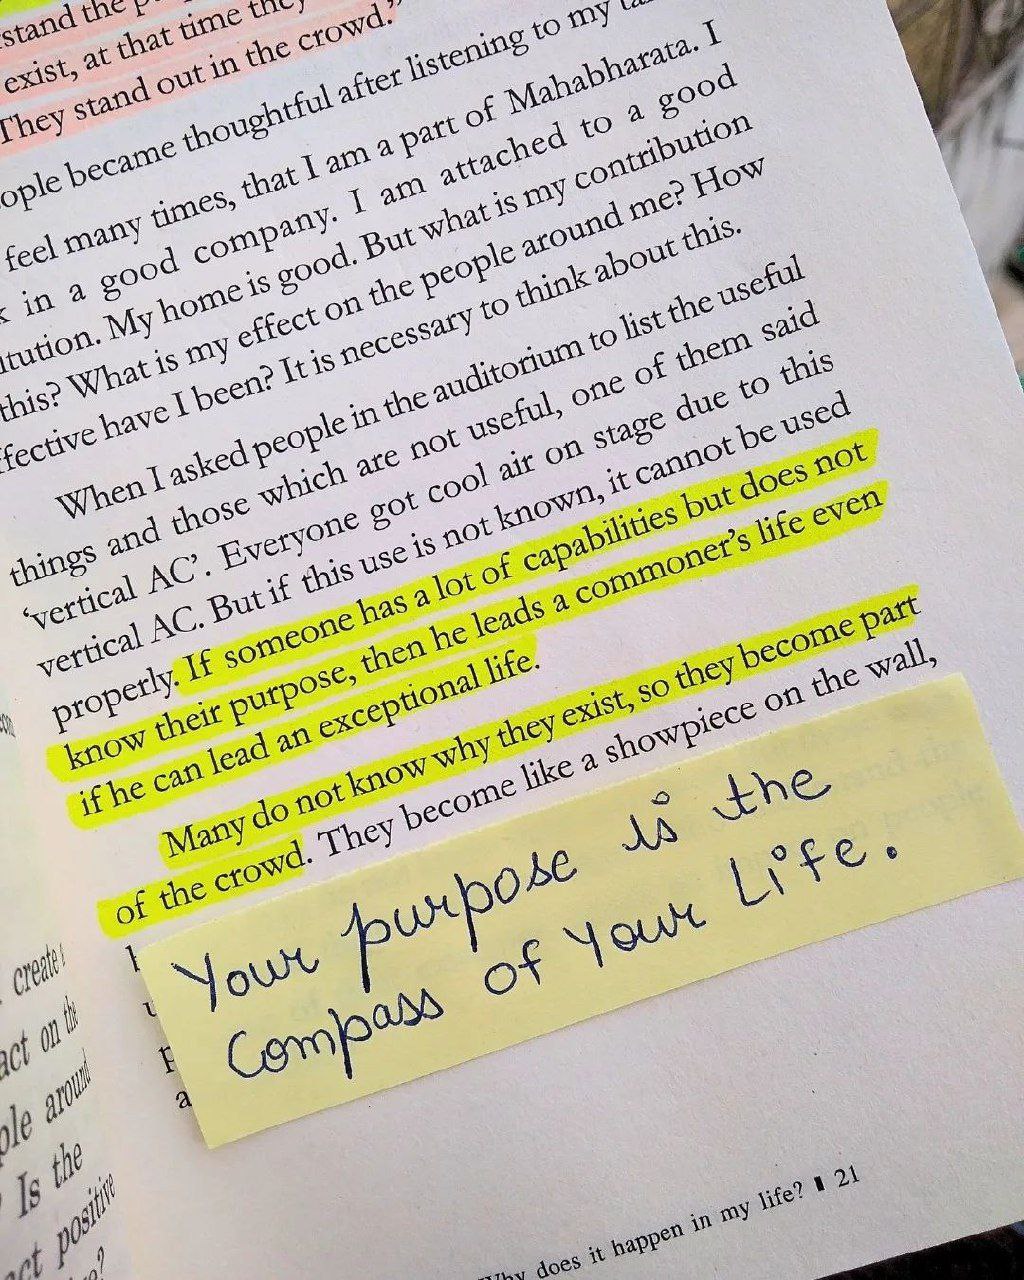 stand the
exist, at that time they
They stand out in the crowd.”
became thoughtful after listening to my
feel many times, that I am a part of Mahabharata. I
in a good company. I am attached to a good
My home is good. But what is my contribution
this? What is my effect on the people around me? How
have I been? It is necessary to think about this.
When I asked people in the auditorium to list the useful
things and those which are not useful, one of them said
‘vertical AC’. Everyone got cool air on stage due to this
vertical AC. But if this use is not known, it cannot be used
properly. If someone has a lot of capabilities but does not
know their purpose, then he leads a commoner’s life even
if he can lead an exceptional life.
Many do not know why they exist, so they become part
of the crowd. They become like a showpiece on the wall,
Your purpose is the
Compass of Your Life.
does it happen in my life? ▮ 21
create
on the
around
Is the
positive